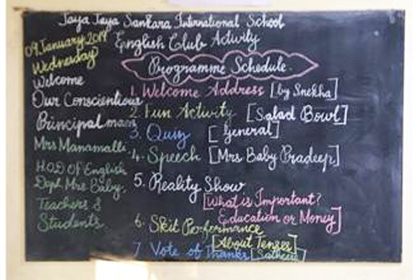 Jaya Jaya Sankara International School
English Club Activity
09.January.2019
Wednesday
Programme Schedule
Welcome
Our Conscientious
Principal mam
Mrs Manamalli
H.O.D Of English
Dept. Mrs Baby.
Teachers &
Students.
1. Welcome Address [by Snekha]
2. Fun Activity [Salad Bowl]
3. Quiz [General]
4. Speech [Mrs Baby Pradeep]
5. Reality Show
[What is Important?
Education or Money]
6. Skit Performance
[About Tenses]
7. Vote of Thanks [Sathesh]